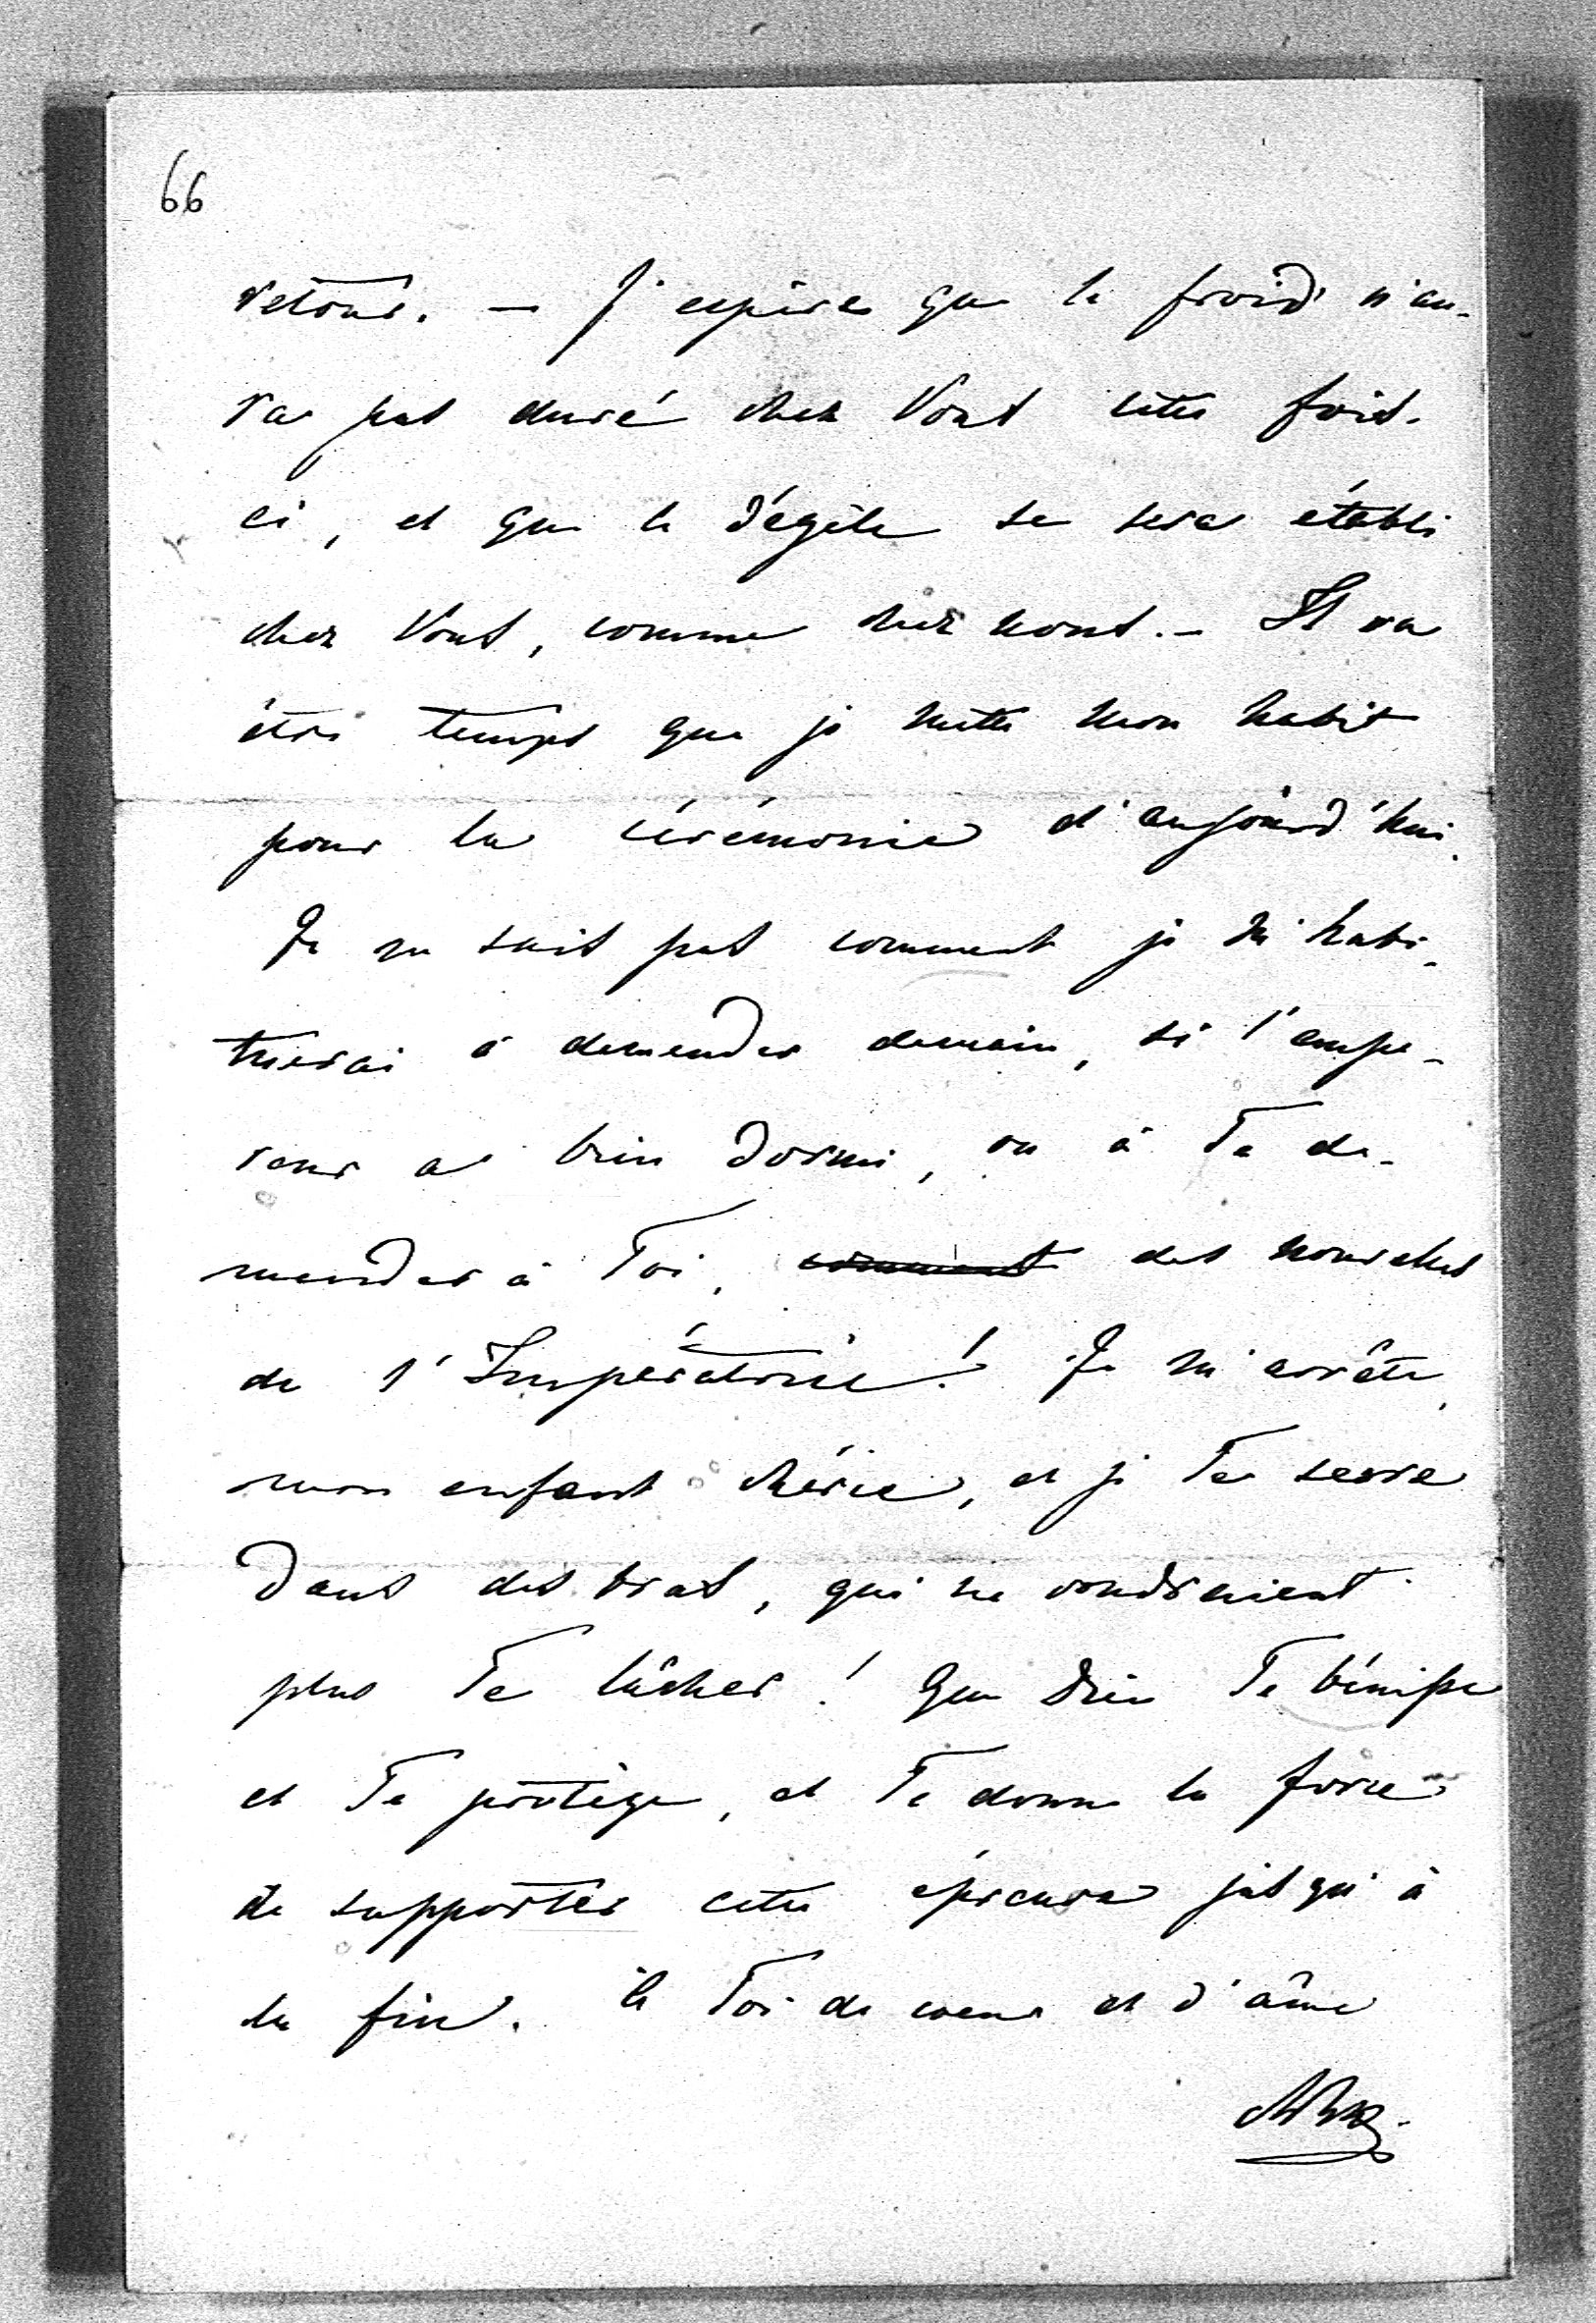 66
retour. — J'espère que le froid n'au-
ra pas duré chez Vous cette fois-
ci, et que le dégèle se sera établi
chez Vous, comme chez nous. — Il va
être temps que je mette mon habit
pour la cérémonie d'aujourd'hui.
Je ne sais pas comment je m'habi-
tuerai à demender demain, si l'empe-
reur a bien dormi, ou à Te de-
mender à Toi, comment des nouvelles
de l'Impératrice! Je m'arrête,
mon enfant chérie, et je Te serre
dans des bras, qui ne voudraient
plus Te lâcher! Que Dieu Te bénisse
et Te protège, et Te donne la force
de supporter cette épreuve jusqu'à
la fin. à Toi de coeur et d'âme